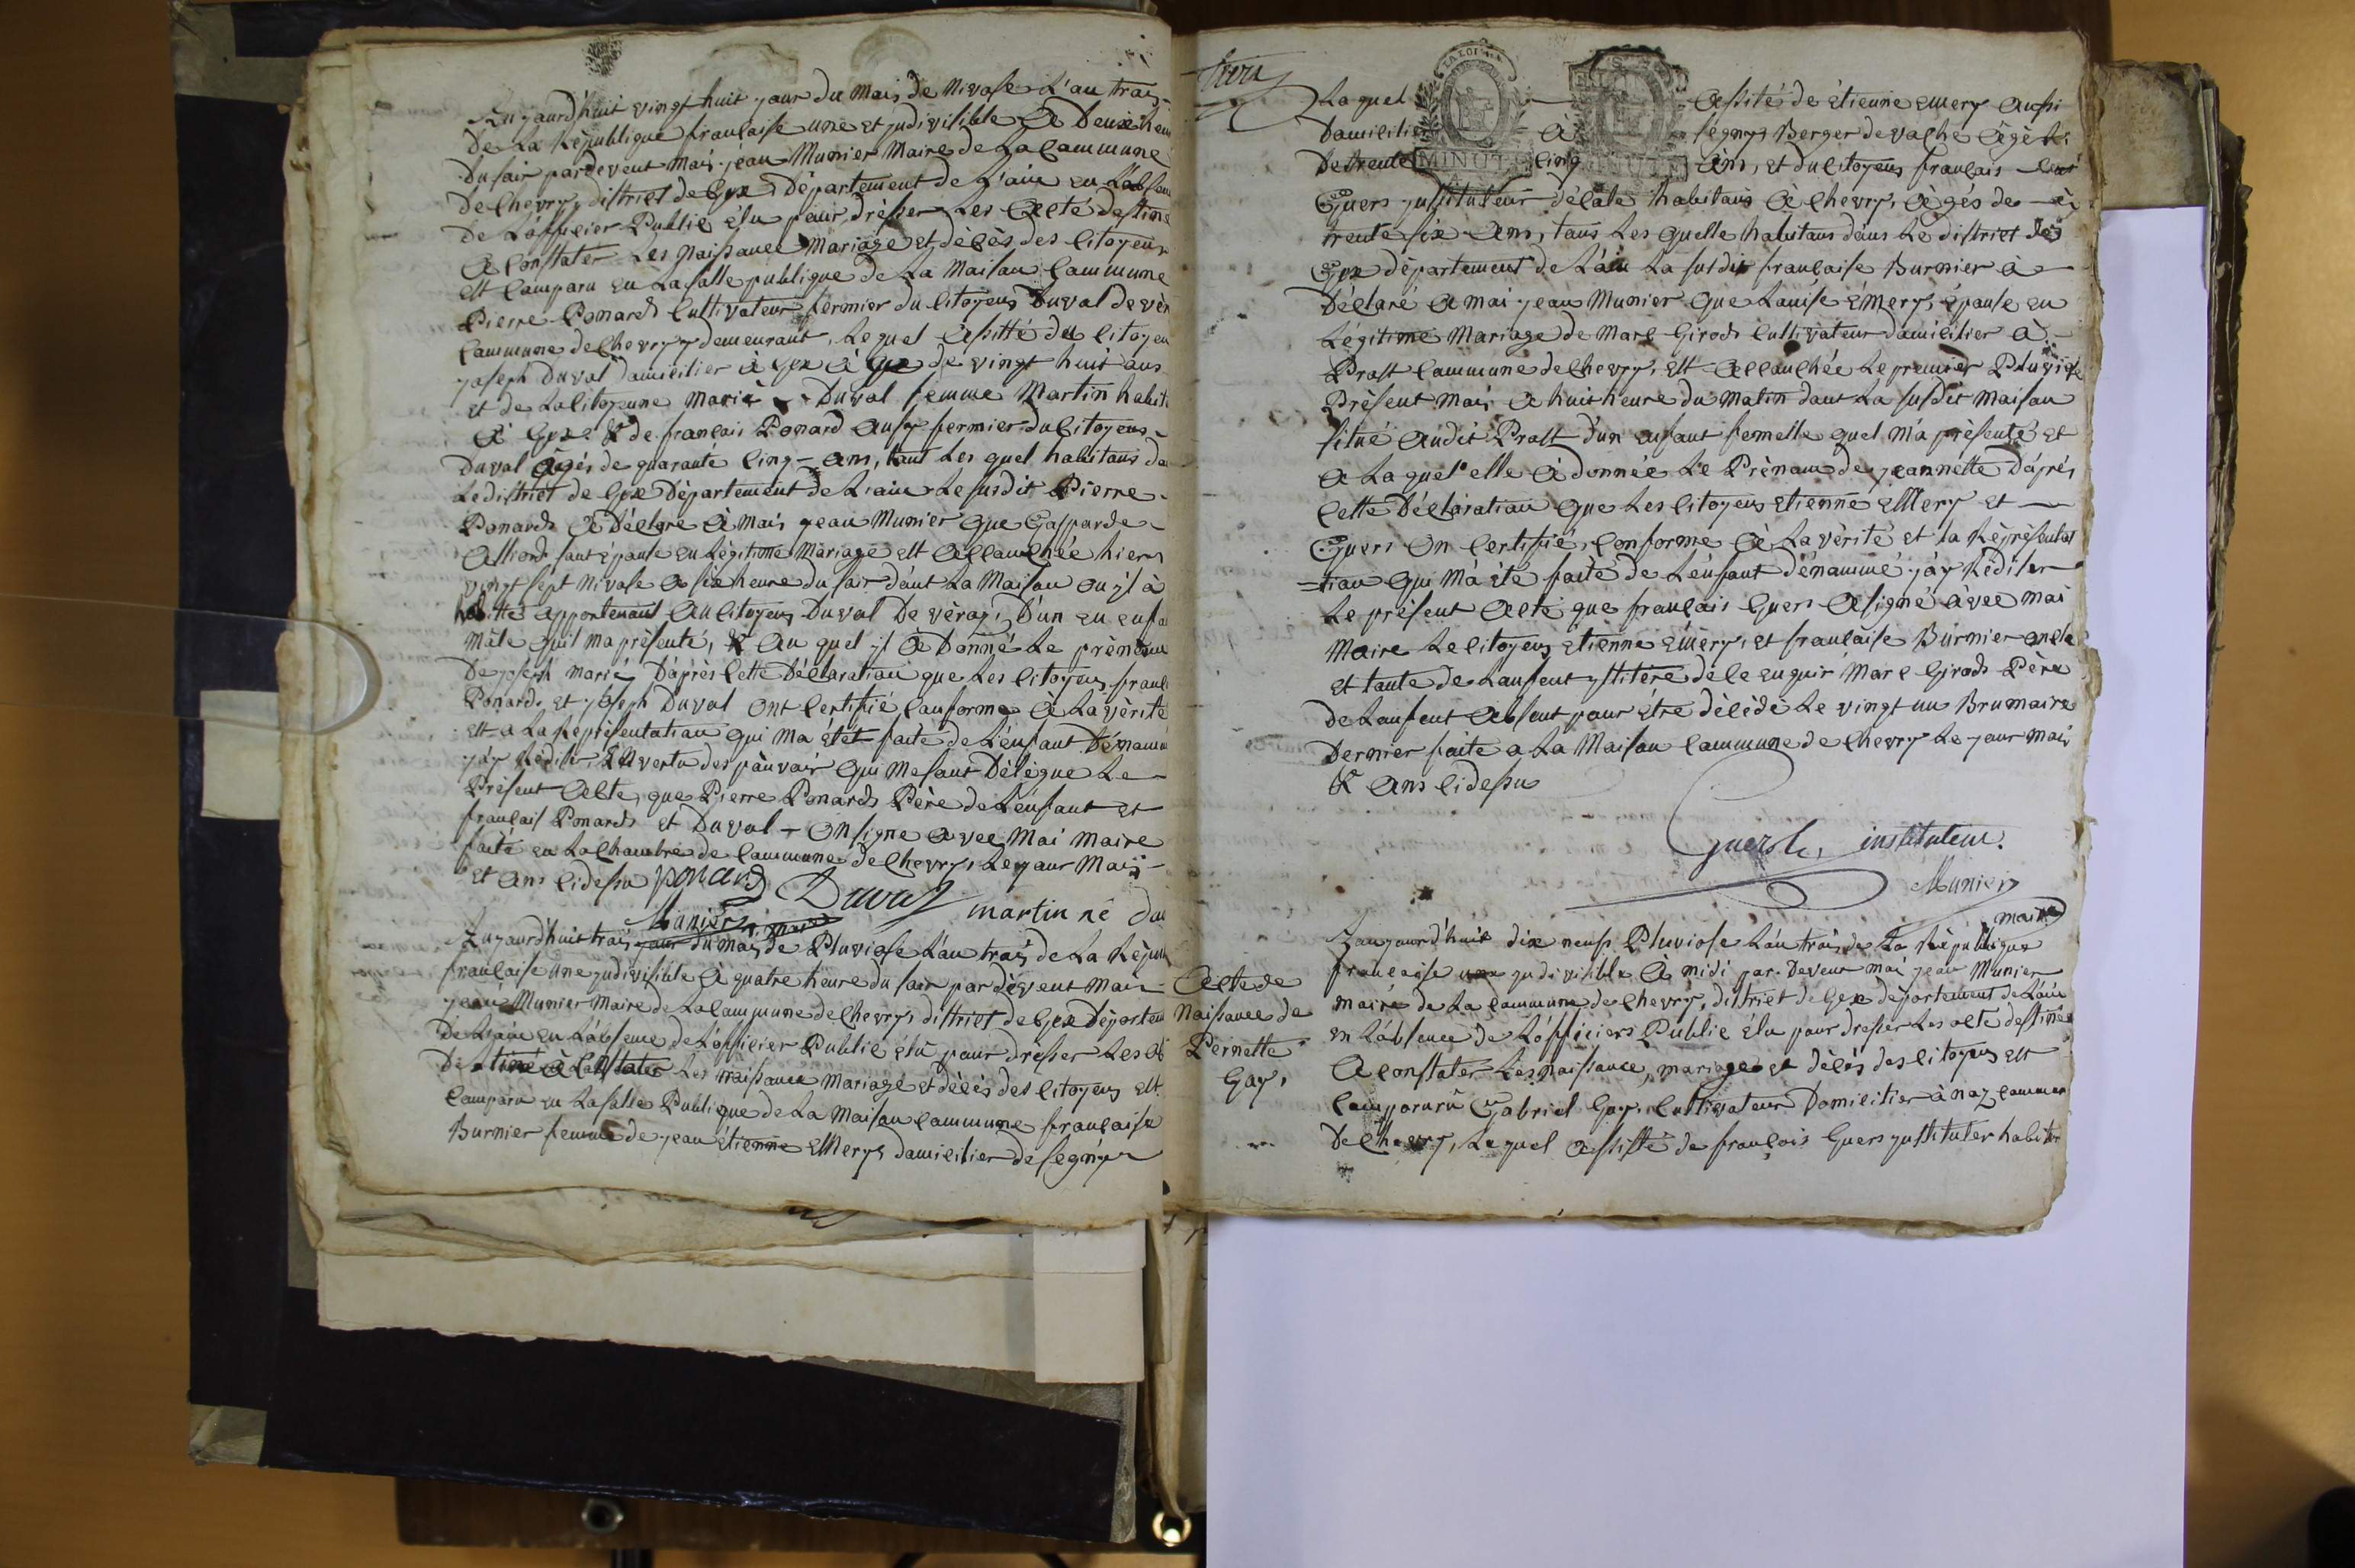 Zujaurdhuit vingt huit jaur du mais de Nivose L'an trais
De La République francaise une et judivisible a Deux heu
Du sair pardevent mais jean Munier Maire de La Cammune
De Chevry, district de Gex Département de L'ain en Labsen
De Lofficier Public élu paur drésser Les Acté destine
A Constater Les Naissance Mariage et décès des Citoyens
est Camparu en La salle publique de La Maisan Cammune
Pierre Ponard Cultivateur fermier du Citoyens Duval de vér
Cammune de Chevry y demeurant, Le quel assitté du Citoyen
joseph Duval damicilier à Gex à Ge de vingt huit ans
et de La Citoyenne Marie Duval femme Martin habit
à Gex & de francais Ponard ausy fermier du Citoyens
Duval âgés de quarante Cinq ans, taut Les quel habitans da
Le district de Gex Département de L'ain Le susdit Pierre
Ponard a Déclare à Mais jean Munier que Gasparde
Alliond saut épause en Légitime Mariage est accauchée hiers
vingt sept Nivose a six heure du sair dant La Maisan ou jl à
habitté appertenant au Citoyens Duval De vèraz, D'un en enfa
Mâle quil ma présenté, & au quel jl a Donné Le prénam
De joseph marié D'après Cette Déclaration que Les Citoyens francais
Ponard, et joseph Duval ont Certifié Canforme à La vérité
et a La Représentatian qui ma étét faité de L'enfant Dénammé
j'ay Rédiser En vertu des pauvair qui me sant Délégue Le
Présent Acte, que Pierre Ponard Père de L'énfant et
français Ponard et Duval - on signe avec Mai Maire
faité en La Chambre de Cammune de Chevry, Le jaur Mais
et ans Cidessu ponard Duval martin né du
Munier maire
Zujaurdhuit trais jaur du mais de Pluviose L'an trais de La Répu
francaise une judivisible à quatre heure du sair par dévent Mais
jean Munier Maire de La Cammune de Chevry district de Gex Départem
De L'ain en L'absence de L'officier Public élu paur dresser Les Ac
Destiné à Canstater Les naissance Mariage et décès des Citoyens est
Camparu en La salle Publique de La Maisan Cammune francaise
Burnier femme de jean étienne Emery damicilier de segny
Laquel assité de étienne Emery aussi
Damicilié à segny Berger de vache âgé
De trente Cinq ans, et du Citoyens français
Guers justituteur délale habitans à Chevry, âgés de
trente six ans, taus Les quelle habitans dans Le district de
Gex département de L'ain La susdit francaise Burnier à
Déclaré a mai jean Munier que Lauise Emery, épause en
Légitime Mariage de Marc Girod Cultivateur damicilier à
Prast Cammune de Chevry, est accauchée Le premier Pluviose
Présent Mais a huit heure du Matin dant La susdit Maisan
situé audit Prast d'un enfant femelle quel m'a présenté et
a Laquel elle à donnée Le Prénam de jeannétte D'aprés
Cette Déclaratian que Les Citoyens Etienne Emery et
Guers on Certifié, Conforme à La vérité et La Réprésentat
=tian qui m'a été faité de L'énfant dénammé j'ay Rédiser
Le présent Acté que français Guers a signé avec mai
Maire Le Citoyens Etienne Emery, et francaise Burnier oncle
et tante de Lanfent Marc Girod Père
De Lanfent absent pour être décédé Le vingt un Brumaire
Dernier faite a La Maisan Cammune de Chevry Le jaur Mais
& ans Cidessu
Guers instituteur.
Munier
maire
Acte de
Naissance de
Pernette
Gay,
Zaujourd'huit dix neuf Pluviose L'an trais de La République
française une judivisible à midi par-Devent mai jean Munier
maire de La Cammune de Chevry, district de Gex département de L'ain
en L'absence de L'officiers Public élu pour dresser Les acte destiné
a constater Les naissance, mariage et décés des Citoyens est
Comparuru Gabriel Gay, Cultivateur Domicilier à naz Commun
De Chevry, Lequel assisté de françois Guers justituter habit